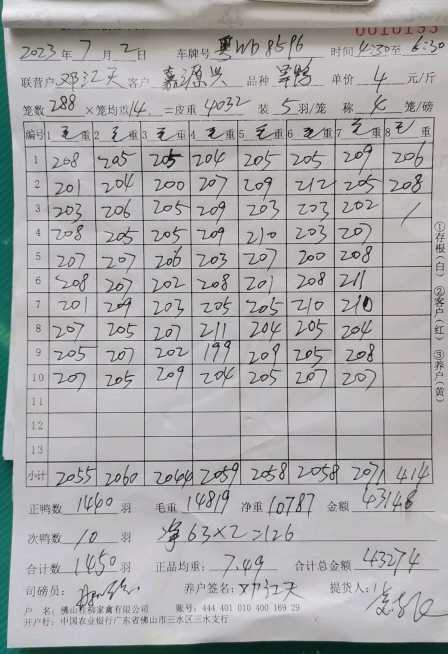 0010193
2023年7月2日 车牌号 粤Wb8596 时间4:30至6:30
联营户邓江天客户 嘉源兴 品种 单价 4 元/斤
笼数288×笼均重14 =皮重4032 装 5 羽/笼 称 4 笼/磅
编号 1毛重 2毛重 3毛重 4毛重 5毛重 6毛重 7毛重 8毛重
1 208 205 205 204 205 205 209 206
2 201 204 200 207 209 212 205 208
3 203 206 205 209 203 203 202 /
4 208 205 205 209 210 203 207
5 207 207 206 203 207 200 208
6 208 207 202 208 201 208 211
7 201 209 203 205 205 210 210
8 207 205 207 211 204 205 204
9 205 207 202 199 209 205 208
10 207 205 209 204 205 207 207
11
12
13
小计 2055 2060 2044 2059 2058 2058 2071 414
正鸭数 1440 羽 毛重 14819 净重 10787 金额 43148
次鸭数 10 羽 净63×2=126
合计数 1450 羽 正品均重: 7.49 合计总金额 43274
司磅员: 养户签名: 邓江天 提货人:
户 名: 佛山 家禽有限公司 账号: 444 401 010 400 169 29
开户行: 中国农业银行广东省佛山市三水区三水支行
①存根(白) ②客户(红) ③养户(黄)